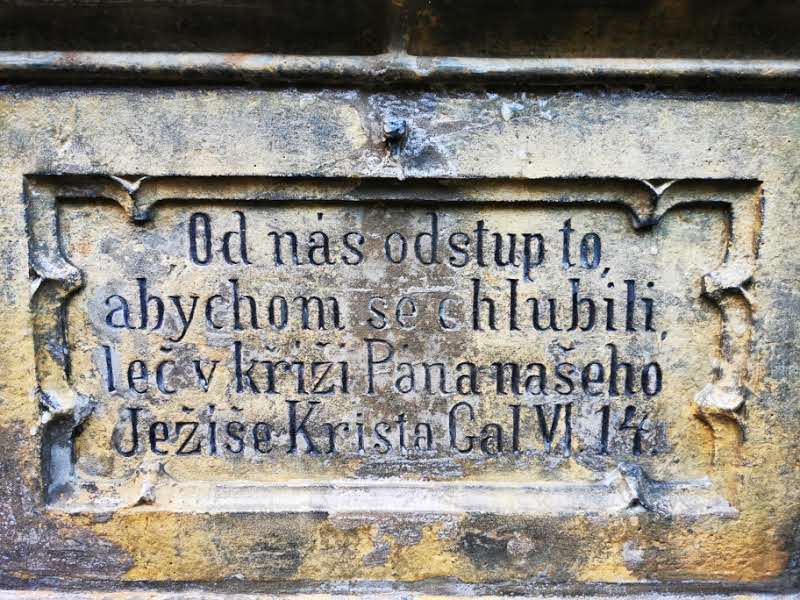 Od nás odstup to,
abychom se chlubili,
leč v kříži Pána našeho
Ježíše Krista Gal. VI. 14.